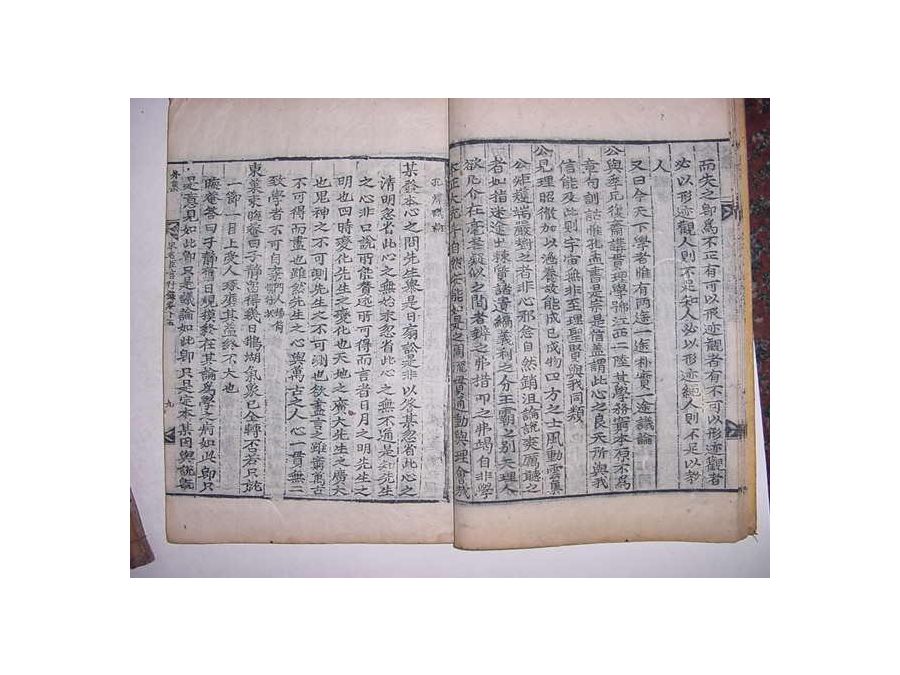 而失之卽爲不正有可以形迹觀者有不可以形迹觀者
必以形迹觀人則不足知人必以形迹繩人則不足以救
人
又曰今天下學者惟有兩途一途朴實一途議論
公與季兄復齋講貫理學號江西二陸其學務窮本原不爲
章句訓詁惟孔孟書是宗是信蓋謂此心之良天所與我
信能及此則宇宙無非至理聖賢與我同類
公見理昭徹加以涵養故能成己成物四方之士風動雲集
公矩矱端嚴對之者非心邪念自然銷沮論說爽厲聽之
者如指迷途
義利之分王霸之別天理人
欲凡介在毫釐疑似之間者辨之弗措叩之弗竭自非學
某發本心之問先生舉是日扇訟是非以答某忽省此心之
清明忽省此心之無始末忽省此心之無不通是知先生
之心非口說所能贊述所可得而言者日月之明先生之
明也四時變化先生之變化也天地之廣大先生之廣大
也鬼神之不可測先生之不可測也欲盡言之雖窮萬古
不可得而盡也雖然先生之心與萬古之人心一貫無二
致學者不可自棄
東萊東晦菴曰子靜
得幾日鵝湖氣象已全轉否若只就
一節一目上受人琢磨其益終不大也
晦庵答曰子靜舊日規模終在其論爲學
病如此卽只
是意見如此卽只是議論如此卽只是定本某因與說